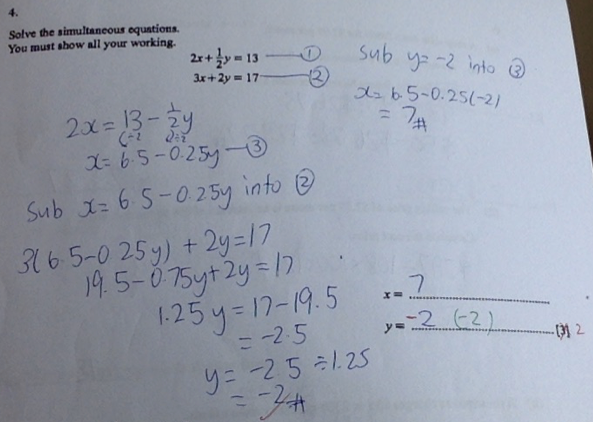 4.
Solve the simultaneous equations.
You must show all your working.
2x + 1/2 y = 13 — ①
3x + 2y = 17 — ②
2x = 13 - 1/2 y
÷2 ÷2
x = 6.5 - 0.25y — ③
Sub x = 6.5 - 0.25y into ②
3(6.5 - 0.25y) + 2y = 17
19.5 - 0.75y + 2y = 17
1.25y = 17 - 19.5
= -2.5
y = -2.5 ÷ 1.25
= -2 #
Sub y = -2 into ③
x = 6.5 - 0.25(-2)
= 7 #
x = 7
y = -2 (-2) [3] 2